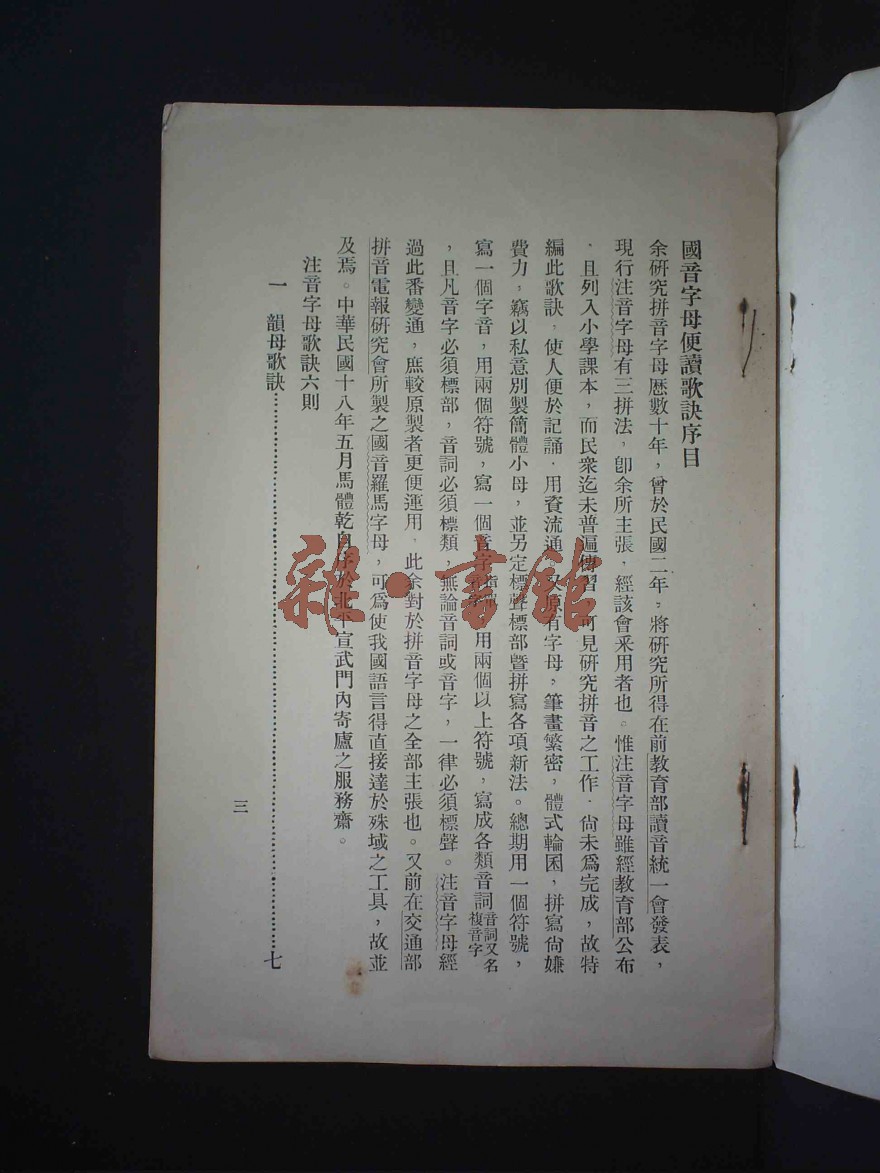 國音字母便讀歌訣序目
余研究拼音字母歷數十年，曾於民國二年，將研究所得在前教育部讀音統一會發表，
現行注音字母有三拼法，卽余所主張，經該會釆用者也。惟注音字母雖經教育部公布
，且列入小學課本，而民衆迄未普遍傳習，可見研究拼音之工作，尙未爲完成，故特
編此歌訣，使人便於記誦，用資流通，又原有字母，筆畫繁密，體式輪囷，拼寫尙嫌
費力，竊以私意別製簡體小母，並另定標聲標部曁拼寫各項新法。總期用一個符號，
寫一個字音，用兩個符號，寫一個音字 用兩個以上符號，寫成各類音詞音詞又名複音字
，且凡音字必須標部，音詞必須標類 無論音詞或音字，一律必須標聲。注音字母經
過此番變通，庶較原製者更便運用，此余對於拼音字母之全部主張也。又前在交通部
拼音電報研究會所製之國音羅馬字母，可爲使我國語言得直接達於殊域之工具，故並
及焉。中華民國十八年五月馬體乾自序於北平宣武門內寄廬之服務齋。
注音字母歌訣六則
一 韻母歌訣……七
三
雜·書館